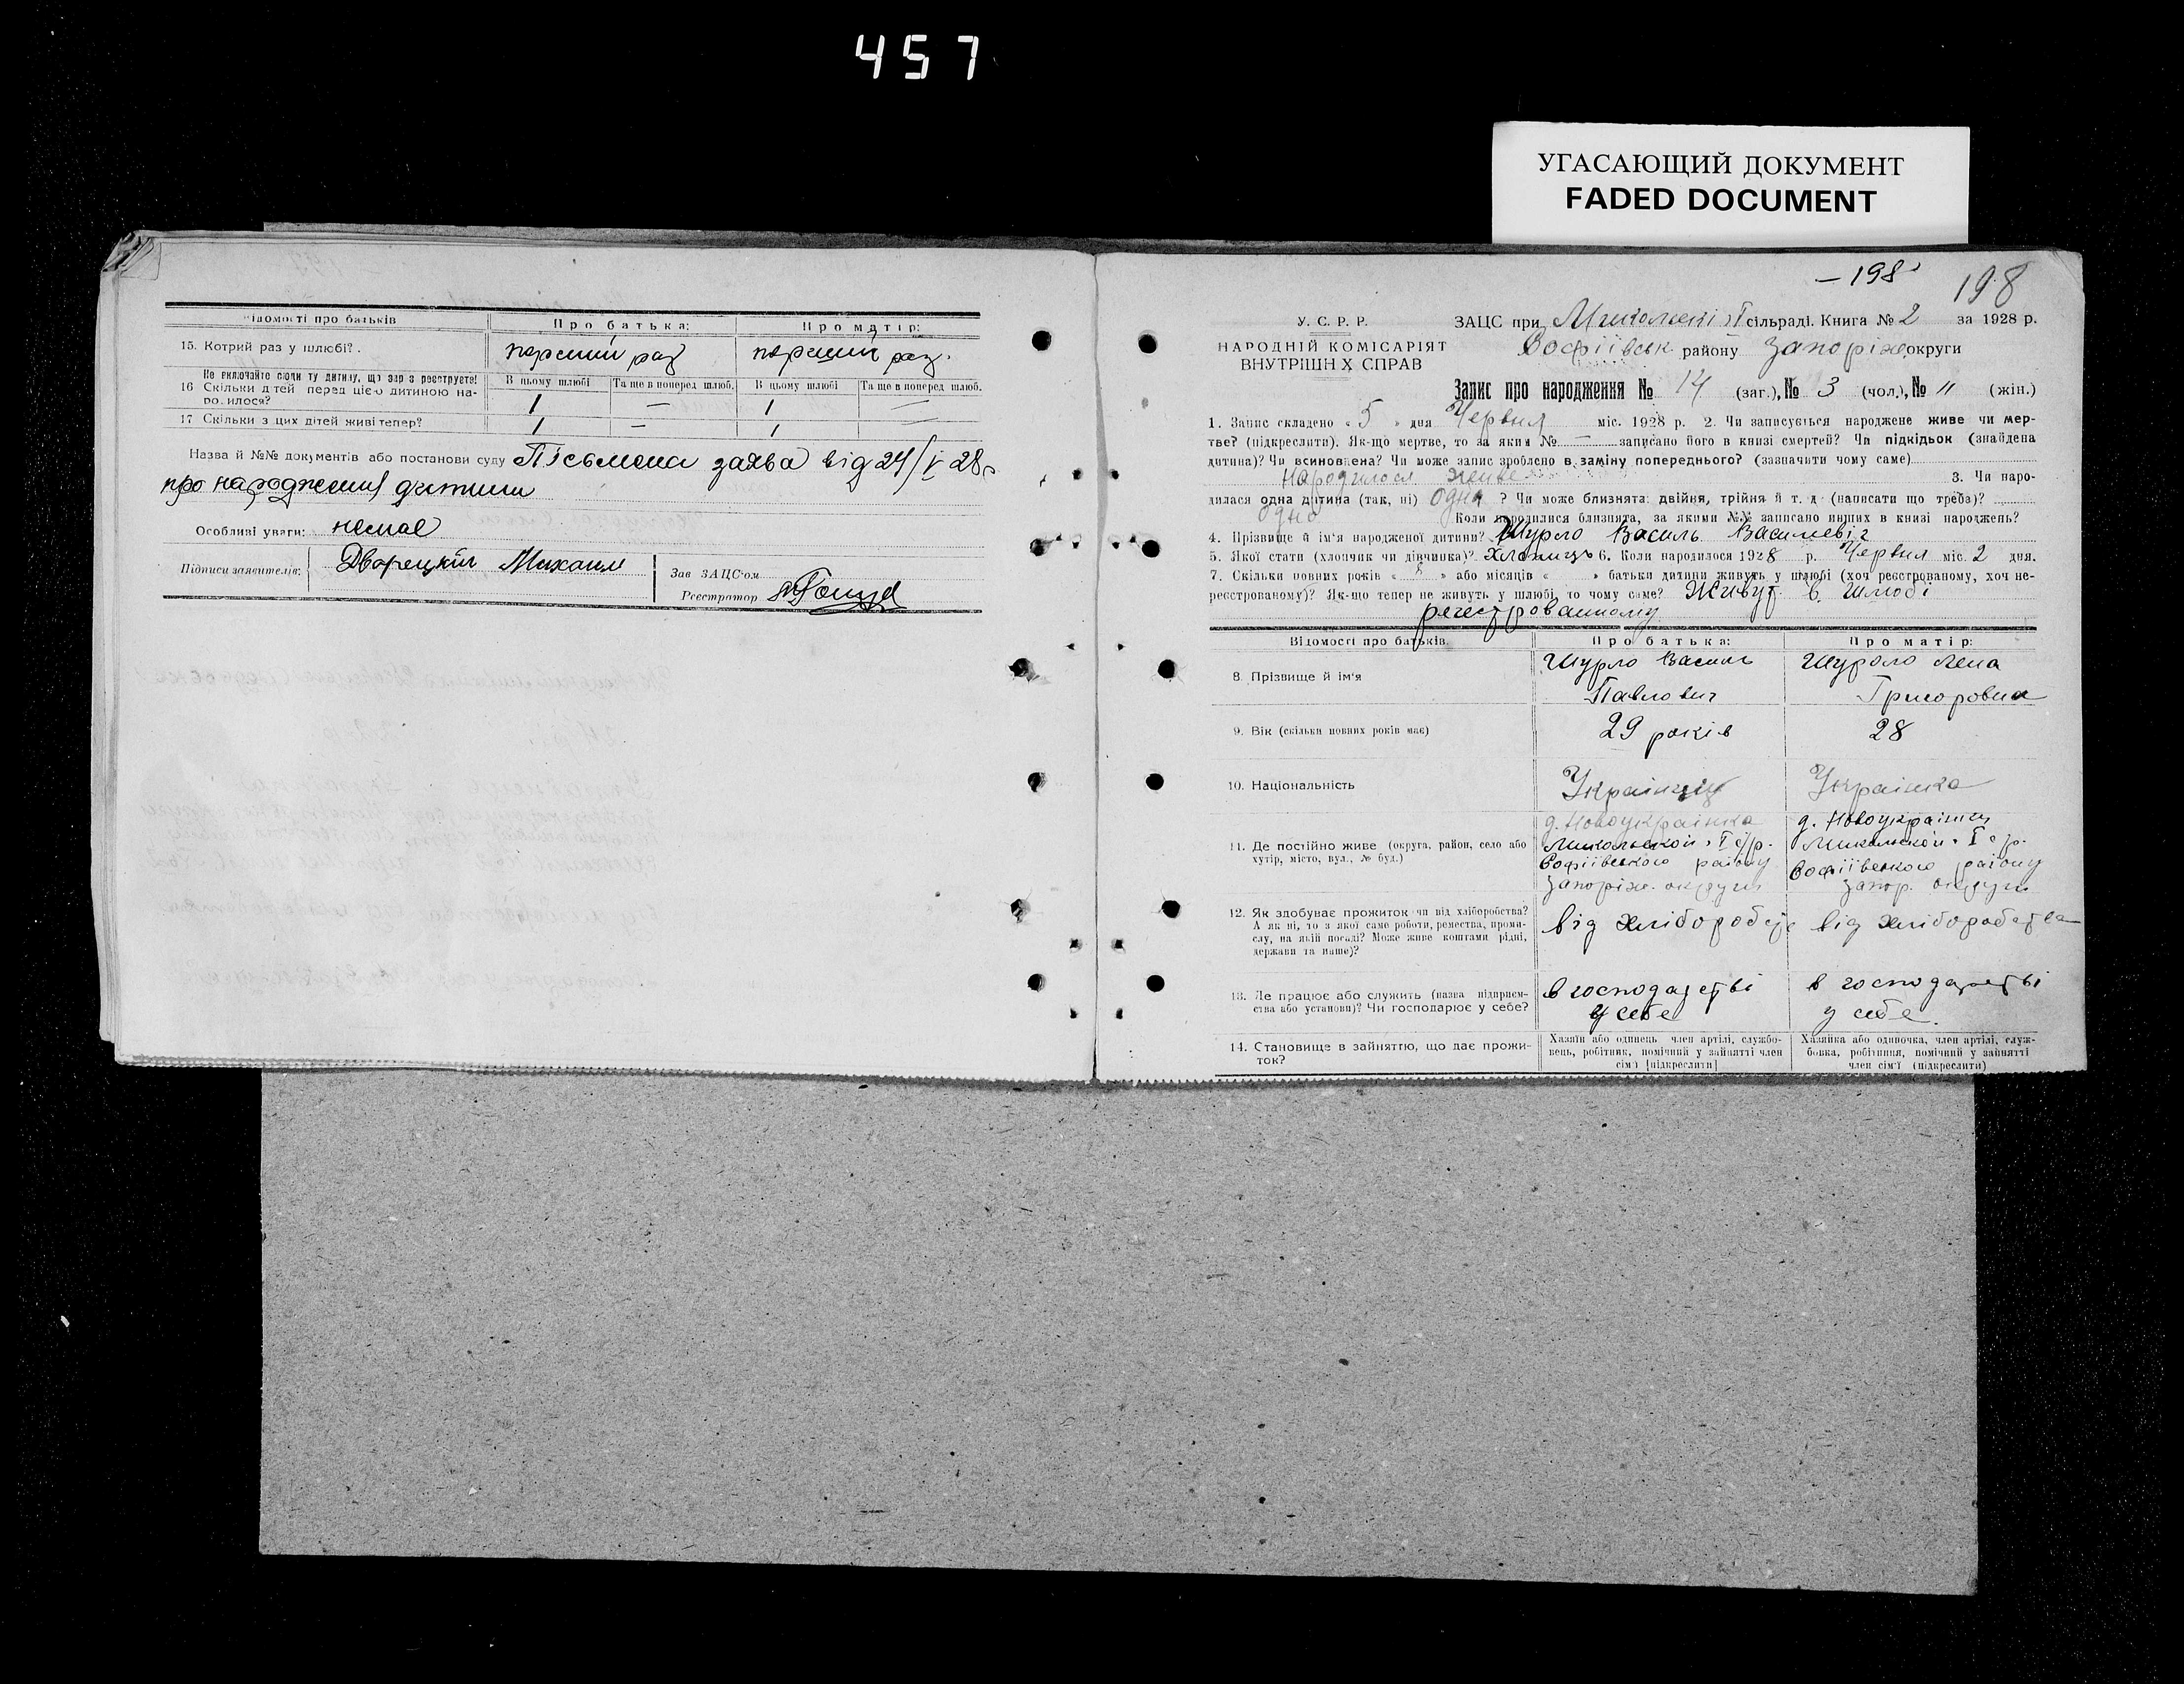 457
УГАСАЮЩИЙ ДОКУМЕНТ
FADED DOCUMENT
Відомості про батьків
Про батька:
Про матір:
15. Котрий раз у шлюбі?.
перший раз
перший раз.
Не включайте сюди ту дитину, що зар з реєструєте!
16 Скільки дітей перед цією дитиною на-
ро илося?
В цьому шлюбі
Та ще в поперед шлюб.
В цьому шлюбі
Та ще в поперед шлюб.
1
—
1
—
17 Скільки з цих дітей живі тепер?
1
—
1
—
Назва й №№ документів або постанови суду Пісьмена заява від 24/V 28 р
про народження дитини
Особливі уваги: немає
Підписи заявителів: Дворецкій Михаил
Зав ЗАЦС'ом
Реєстратор
— 198
198
У. С. Р. Р.
НАРОДНІЙ КОМІСАРІЯТ
ВНУТРІШН Х СПРАВ
ЗАЦС при Микольскі I сільраді. Книга № 2 за 1928 р.
Софіївськ району Запоріж округи
Запис про народження № 14 (заг.), № 3 (чол.), № " (жін.)
1. Запис складено „ 5 " дня Червня міс. 1928 р. 2. Чи записується народжене живе чи мер-
тве? (підкреслити). Як-що мертве, то за яким № — записано його в книзі смертей? Чи підкідьок (знайдена
дитина)? Чи всиновлена? Чи може запис зроблено в заміну попереднього? (зазначити чому саме)
Народилося живе 3. Чи наро-
дилася одна дитина (так, ні) одна ? Чи може близнята: двійня, трійня й т. д (написати що треба)?
одно Коли народилися близнята, за якими №№ записано инших в книзі народжень?
4. Прізвище й ім'я народженої дитини? Шурло Василь Васильевіг
5. Якої стати (хлопчик чи дівчинка)? хлопиць 6. Коли народилося 1928 р. Червня міс. 2 дня.
7. Скільки повних років « » або місяців « » батьки дитини живуть у шлюбі (хоч реєстрованому, хоч не-
реєстрованому)? Як-що тепер не живуть у шлюбі, то чому саме? Живут в шлюбі
регестрованному
Відомості про батьків
Про батька:
Про матір:
8. Прізвище й ім'я
Шурло Василь
Павлович
Шурло Лена
Григоровна
9. Вік (скільки повних років має)
29 років
28
10. Національність
Українець
Українка
11. Де постійно живе (округа, район, село або
хутір, місто, вул., № буд.)
д. Новоукраінка
Микольской I с/р.
Софіївського району
Запоріж. округи
д. Новоукраінки
Микольской I с/р.
Софіївського району
Запор. округи
12. Як здобуває прожиток чи від хліборобства?
А як ні, то з якої саме роботи, ремества, проми-
слу, на якій посаді? Може живе коштами рідні,
держави та инше)?
від хлібороб
від хліборобства
13. Де працює або служить (назва підприєм-
ства або установи)? Чи господарює у себе?
в господарстві
у себе
в господарстві
у себе.
14. Становище в зайняттю, що дає прожи-
ток?
Хазяїн або одинець член артілі, службо-
вець, робітник, помічний у зайнятті член
сім'ї [підкреслити]
Хазяйка або одиночка, член артілі, служ-
бовка, робітниця, помічний у зайнятті
член сім'ї (підкреслити)